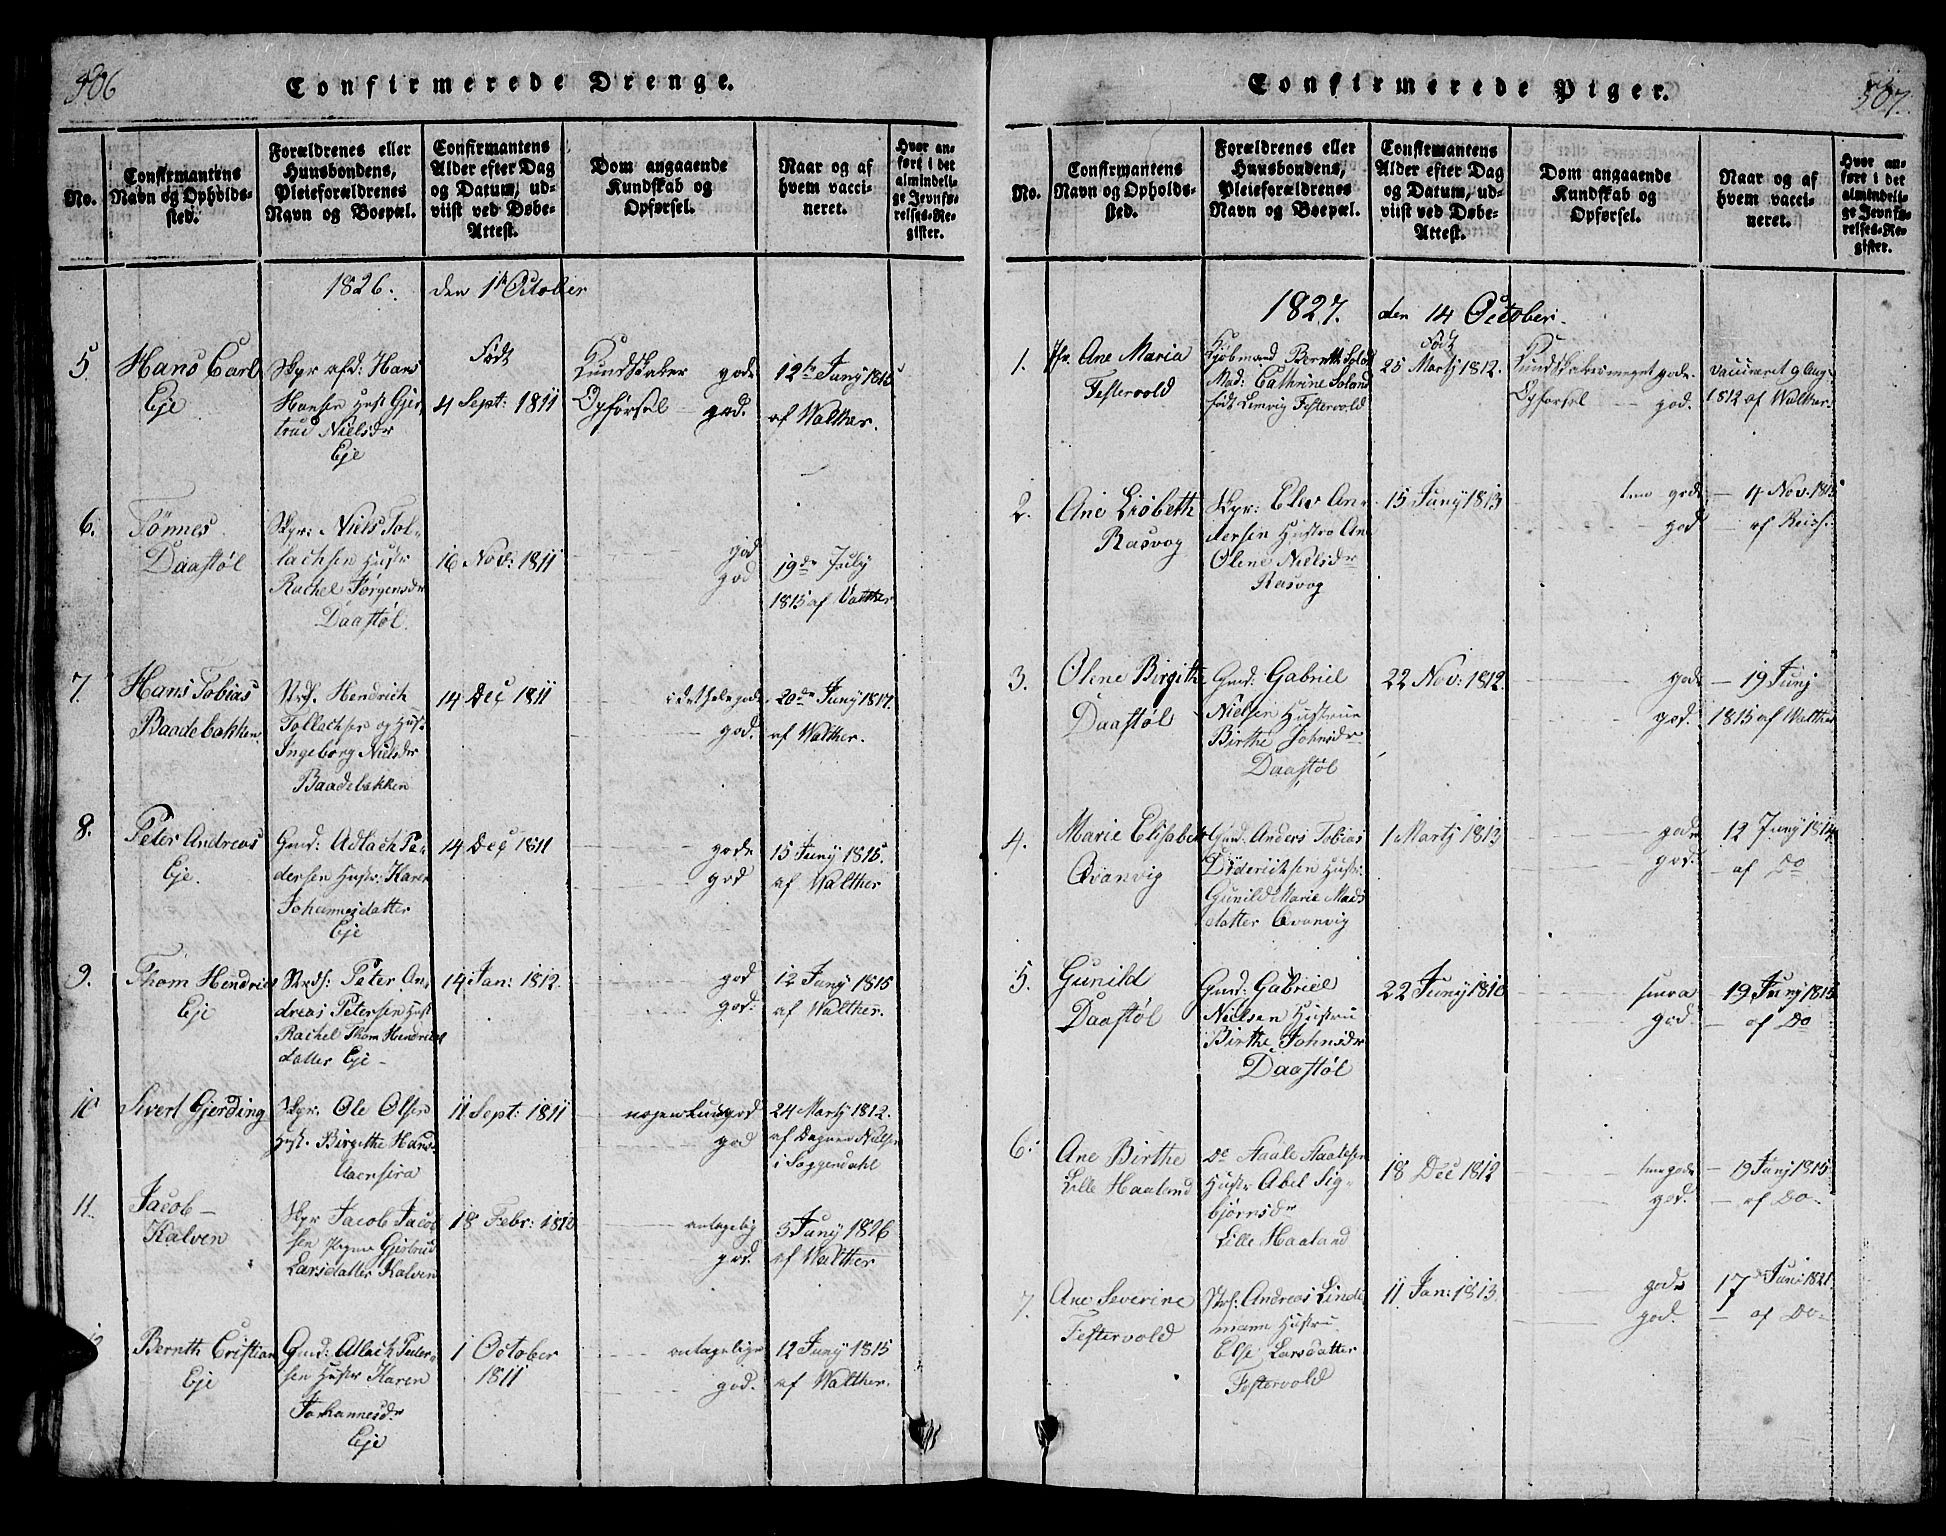 506
Confirmerede Drenge.
No.
Confirmantens
Navn og Opholds-
sted.
Forældrenes eller
Huusbondens,
Pleieforældrenes
Navn og Boepæl.
Confirmantens
Alder efter Dag
og Datum, ud-
viist ved Døbe-
Attest.
Dom angaaende
Kundskab og
Opførsel.
Naar og af
hvem vacci-
neret.
Hvor an-
ført i det
almindeli-
ge Jevnfø-
relses-Re-
gister.
1826. den 1 October
5
Hans Carl
Eje
Skpr afd: Hans
Hansen Hust Gjer
trud Nielsdr
Eje
Født
4 Sept: 1811
Kundskaber gode
Opførsel god.
12te Juny 1815
af Walther.
6.
Tönnes
Daastöl
Skpr: Niels Tol-
lachsen Hustr
Rachel Jørgensdr
Daastöl.
16 Nov: 1811
god
god
19de July
1815 af Walther
7.
Hans Tobias
Baadebakken
Strds. Hendrich
Tollachsen og Hust.
Ingeborg Nielsdr
Baadebakken
14 Dec 1811
god.
20de Juny 1814.
af Walther.
8.
Peter Andreas
Eje.
Gmd: Adlach Pe-
dersen Hustr: Karen
Johannesdatter
Eje
14 Dec 1811
gode
god
15 Juny 1815.
af Walther
9.
Thom Hendrich
Eje
Strds: Peter An-
dreas Petersen Hust
Rachel Thom Hendrichs
datter Eje -
14 Jan: 1812.
god
god.
12 Juny 1815
af Walther.
10
Sivert Gjerding
Skpr. Ole Olsen
Hust. Birgithe Hans-
Aaensira
11 Sept: 1811
nogenlunde god
god
24 Martz 1812.
af Dagnes Nielsen
i Soggendahl
11.
Jacob -
Kalven
Skpr Jacob Jacob
sen Gjertrud
Larsdatter Kalven
18 Febr: 1810
antagelig
god.
3 Juny 1816
af Walther
12
Bernth Cristian
Eje
Gmd: Allach Peder-
sen Hustr Karen
Johannesdr
Eje
1 October
1811
antagelige
god.
12 Juny 1815
af Walther.
507.
Confirmerede Piger.
No.
Confirmantens
Navn og Opholds-
sted.
Forældrenes eller
Huusbondens,
Pleieforældrenes
Navn og Boepæl.
Confirmantens
Alder efter Dag
og Datum, ud-
viist ved Døbe-
Attest.
Dom angaaende
Kundskab og
Opførsel.
Naar og af
hvem vacci-
neret.
Hvor an-
ført i det
almindeli-
ge Jevnfø-
relses-Re-
gister.
1827. den 14 October.
1.
Jfr. Ane Maria
Festervold
Kjøbmand Bernth Soland
Mad: Cathrine Soland
født Lemvig Festervold
Født
25 Martz 1812.
Kundskaber meget gode.
Opførsel god.
vaccineret 9 Aug.
1812 af Walther.
2.
Ane Lisbeth
Rasvog
Skpr: Elias An-
dersen Hustro Ane
Olene Nielsdr
Rasvog
15 Juny 1813
gode
god
- 4 Nov. 1815
af Reish.
3.
Olene Birgithe
Daastöl
Gmd: Gabriel
Nielsen Hustrue
Birthe Johnsdr
Daastöl
22 Nov: 1812.
gode
god.
- 19 Junj
1815 af Walther
4.
Marie Elisabeth
Qvanvig
Gmd. Anders Tobias
Diderichsen Hustr.
Gunild Marie Mads
datter Qvanvig
1 Martz 1813
gode
god.
12 Juny 1814
- af Do
5.
Gunild
Daastöl
Gmd: Gabriel
Nielsen Hustru
Birthe Johnsdr
Daastöl
22 Juny 1810
god
19 Juny 1815
- af Do
6.
Ane Birthe
Lille Haaland
Do Aaale Aaalesen
Hustr Abel Sig-
bjørnsdr
Lille Haaland
18 Dec 1812
gode
god.
- 19 Junj 1815
- af Do.
7.
Ane Severine
Festervold
Strds: Andreas Linde
mann Hustru
Else Larsdatter
Festervold
11 Jan: 1813.
gode
god.
17 Juni 1821.
- af Do-